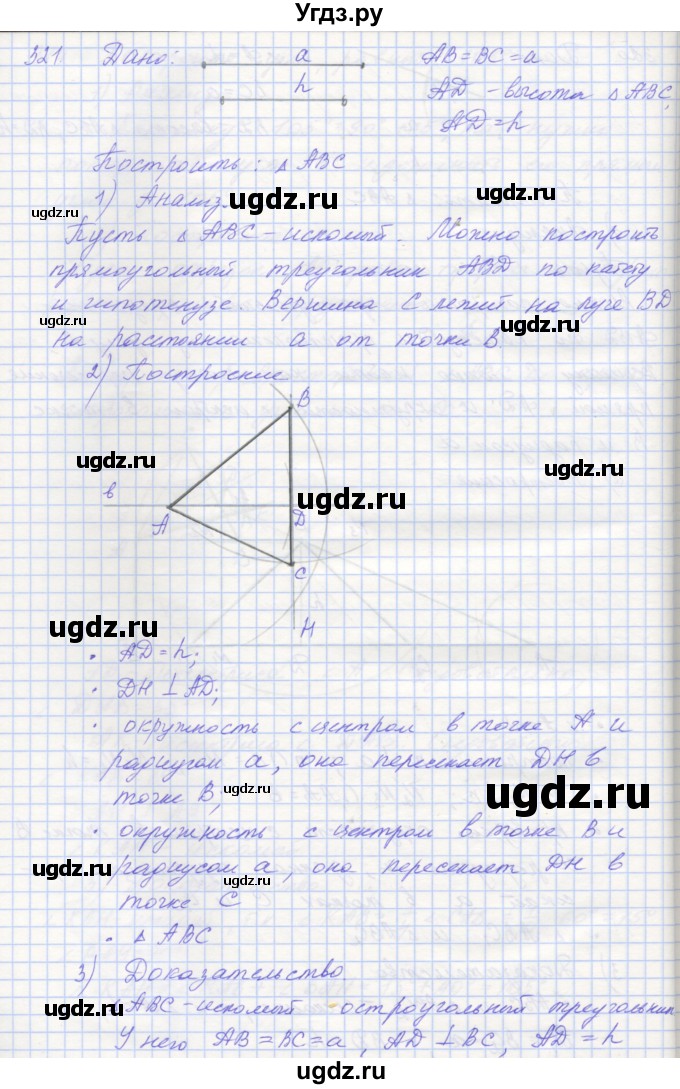 Угдз.ру
321 Дано: a AB=BC=a
h AD - высота △ABC,
AD=h
Построить: △ABC
ugdz.ru ugdz.ru
1) Анализ.
ugdz.ru ugdz.ru
Пусть △ABC - искомый. Можно построить
прямоугольный треугольник ABD по катету
и гипотенузе. Вершина C лежит на луче BD
ugdz.ru ugdz.ru
на расстоянии a от точки B.
2) Построение
B
ugdz.ru ugdz.ru
в ugdz.ru
A D
C
ugdz.ru H ugdz.ru
· AD=h;
· DH ⊥ AD;
· окружность с центром в точке A и
радиусом a, она пересекает DH в
точке B; ugdz.ru ugdz.ru
· окружность с центром в точке B и
радиусом a, она пересекает DH в
ugdz.ru ugdz.ru ugdz.ru
точке C
· △ABC
3) Доказательство
△ABC - искомый остроугольный треугольник.
ugdz.ru ugdz.ru
У него AB=BC=a, AD ⊥ BC, AD=h
ugdz.ru